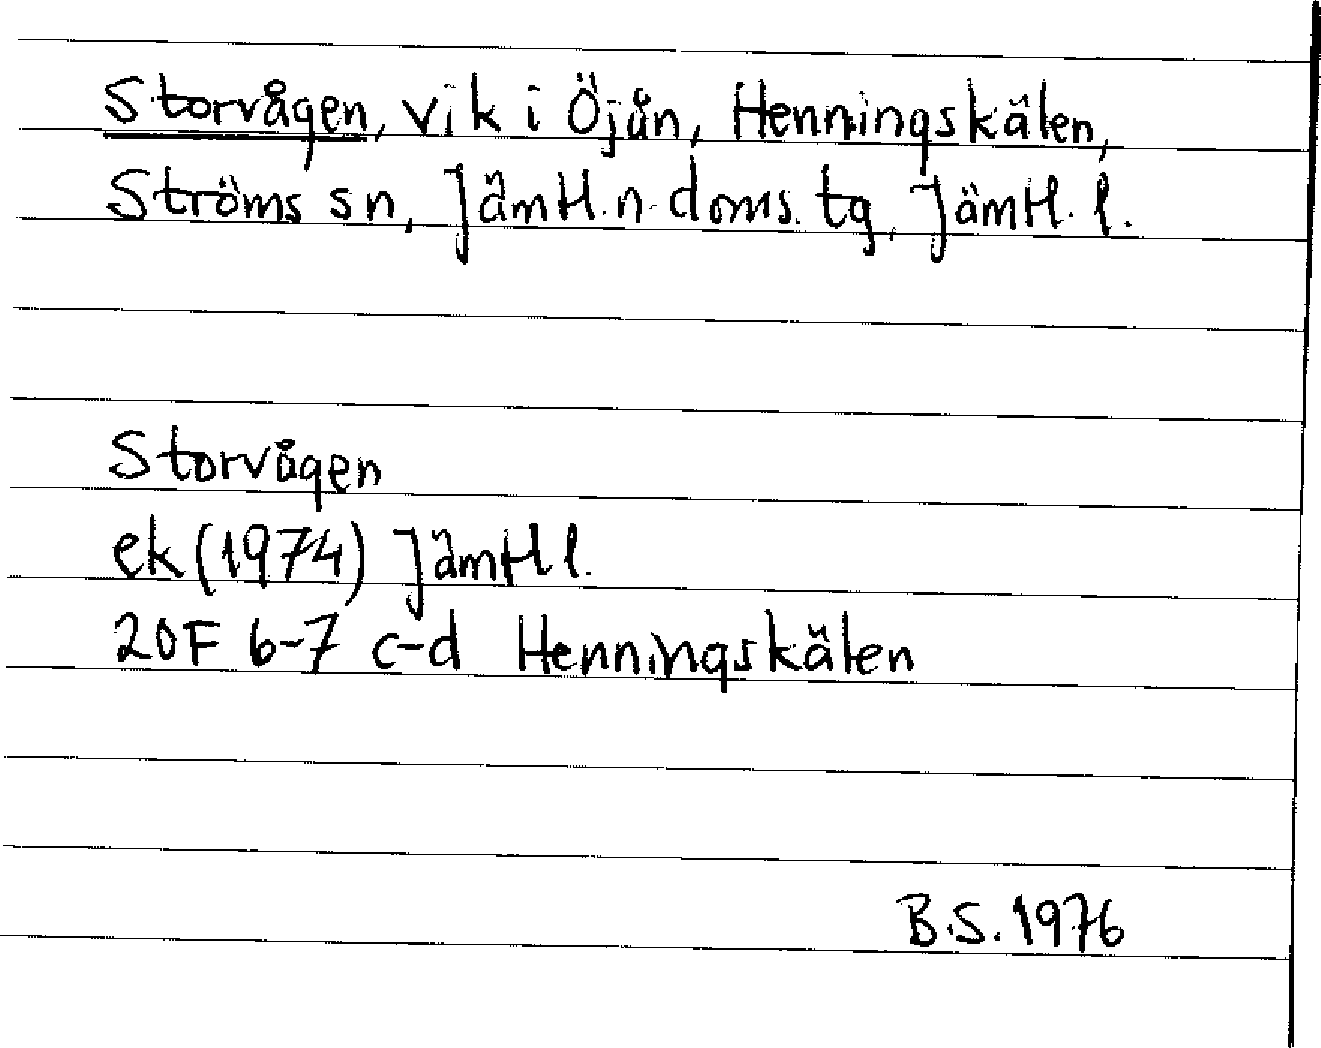 Storvågen, vik i Öjån, Henningskälen,
Ströms sn, Jämtl.n. doms. tg, Jämtl. l.
Storvågen
ek (1974) Jämtl l.
20F 6-7 c-d Henningskälen
B.S. 1976